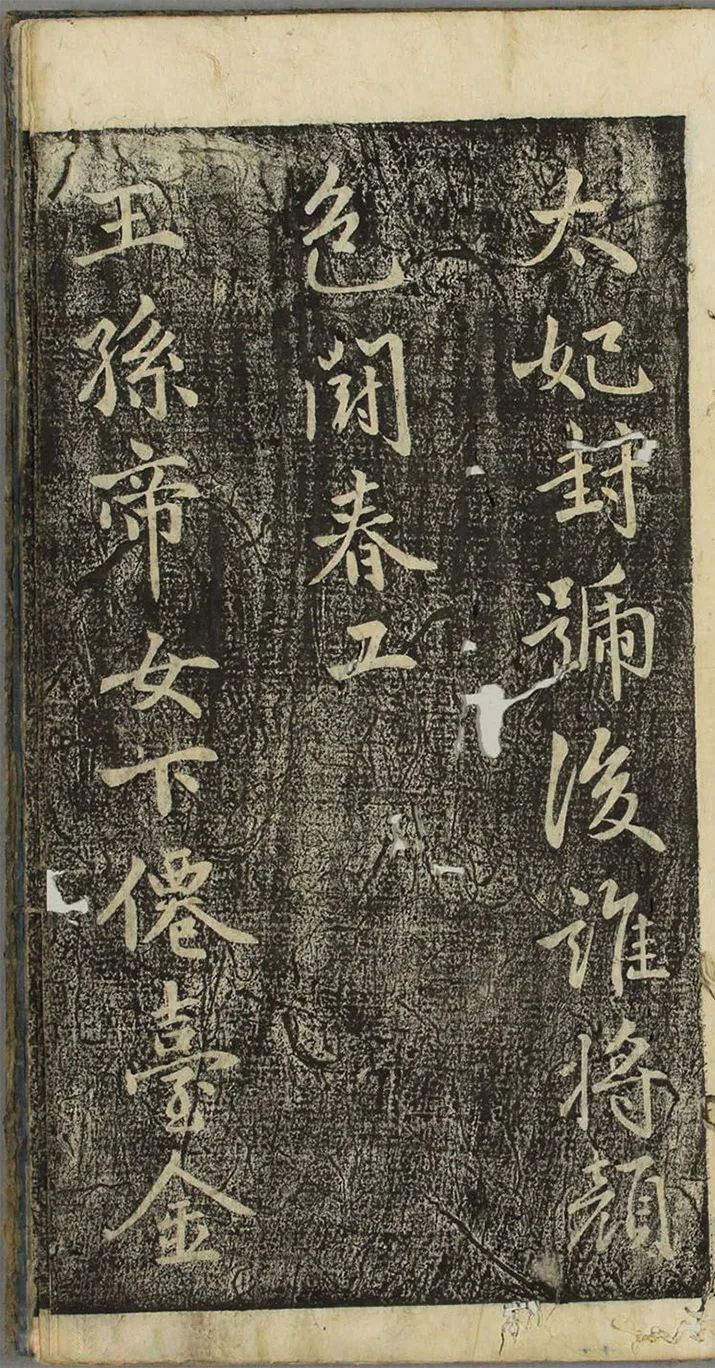 太妃封號後誰將顔
色鬪春工
王孫帝女下僊臺金